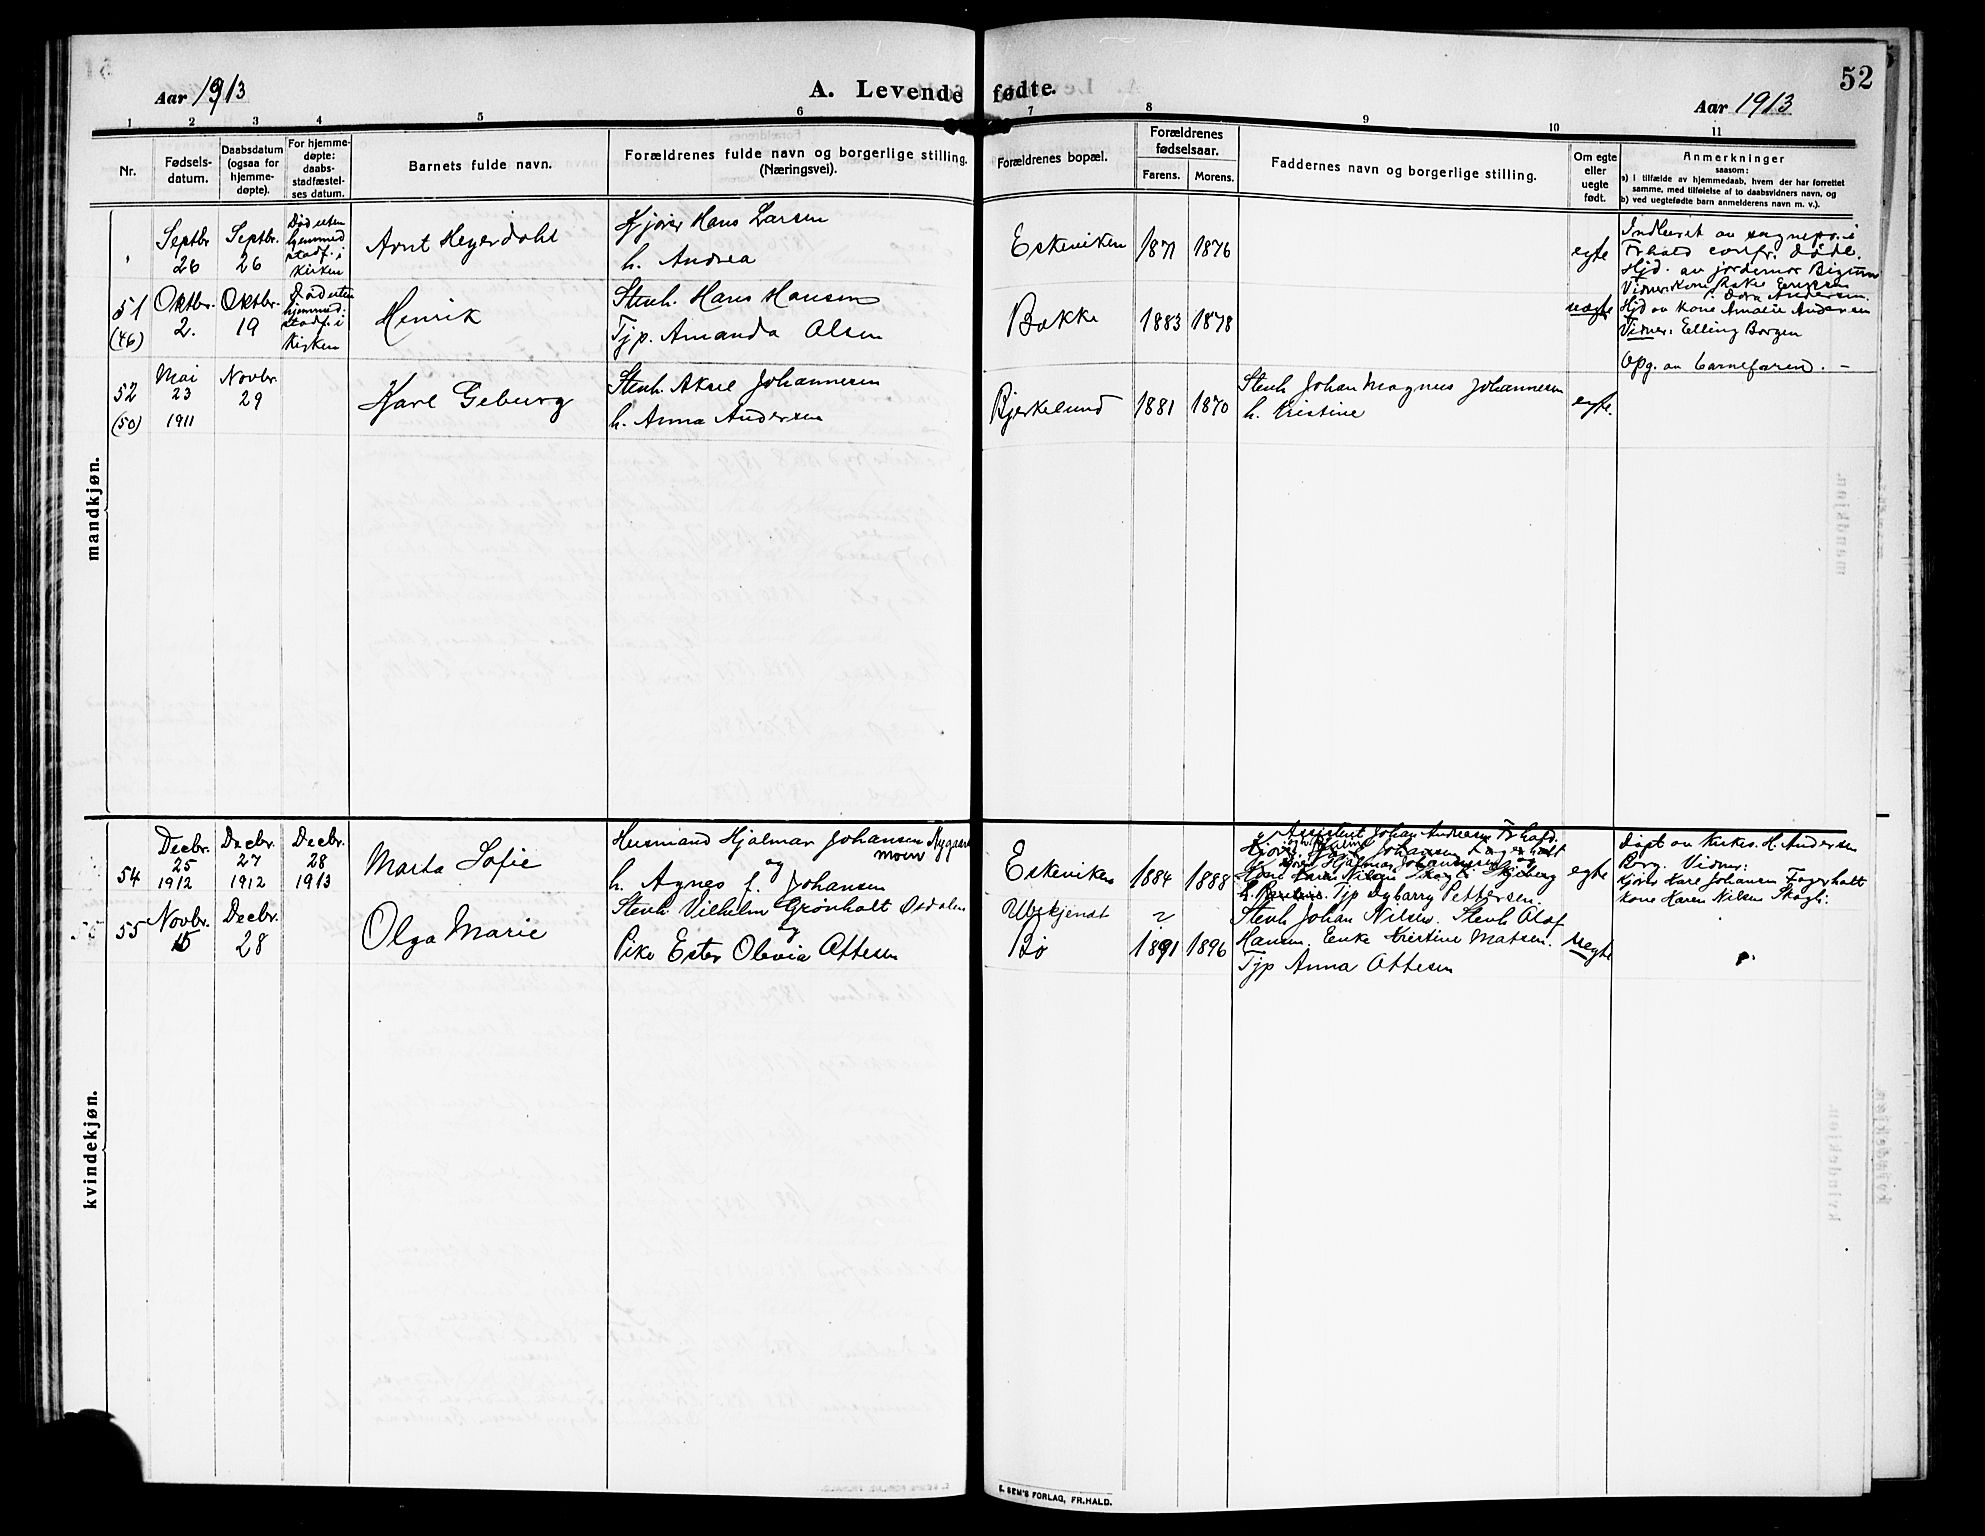 Aar 1913
A. Levende fødte.
52
Aar 1913
1 2 3 4 5 6 7 8 9 10 11
Nr.
Fødsels-
datum.
Daabsdatum
(ogsaa for
hjemme-
døpte).
For hjemme-
døpte:
daabs-
stadfæstel-
ses datum.
Barnets fulde navn.
Forældrenes fulde navn og borgerlige stilling.
(Næringsvei).
Forældrenes bopæl.
Forældrenes
fødselsaar.
Farens. Morens.
Faddernes navn og borgerlige stilling.
Om egte
eller
uegte
født.
Anmerkninger
saasom:
a) i tilfælde av hjemmedaab, hvem der har forrettet
samme, med tilføielse af to daabsvidners navn, og
b) ved uegtefødte barn anmelderens navn m. v.).
mandkjøn.
Septbr
26
Septbr.
26
Død uten
hjemmed.
stadf. i
Kirken
Arnt Heyerdahl
Kjører Hans Larsen
h. Andrea
Eskeviken
1871
1876
egte
Indleveret av sognepr. i
Frhald confr. døde.
Hjd. av jordemor
51
(46)
Oktbr.
2.
Oktbr.
19
Død uten
hjemmed.
stadf. i
Kirken
Henrik
Stenh. Hans Hansen
Tjp. Amanda Olsen
Bakke
1883
1878
uegte
Hjd av kone Amalie Andersen
Vidner: Elling Borgen
Opg. av barnefaren. –
52
(50)
Mai
23
1911
Novbr.
29
Karl Geburg
Stenh. Aksel Johannesen
h. Anna Andersen
Bjerkelund
1881
1870
Stenh Johan Magnus Johannesen
h. Kristine
egte.
kvindekjøn.
54
Decbr.
25
1912
Decbr.
27
1912
Decbr.
28
1913
Marta Sofie
Husmand Hjalmar Johansen
og
h. Agnes f. Johansen
Eskeviken
1884
1888
Assistent Johan Andresen Frhald.
Tjp Dybarry Pettersen.
egte
Døpt av Kirkes. H. Andersen
Borg. Vidner:
Kjører Karl Johansen Fagerholt
Kone Karen Nilsen Skogli:
55
Novbr.
15
Decbr.
28
Olga Marie
Stenh. Vilhelm Grønholt Ösdalen
og
Pike Ester Olevia Ottesen
Ubekjendt
Bø
1891
1896
Stenh Johan Nilsen. Stenh Olaf
Hansen. Enke Kristine Matsen.
Tjp Anna Ottesen
Uegte
E. SEM'S FORLAG, FR.HALD.